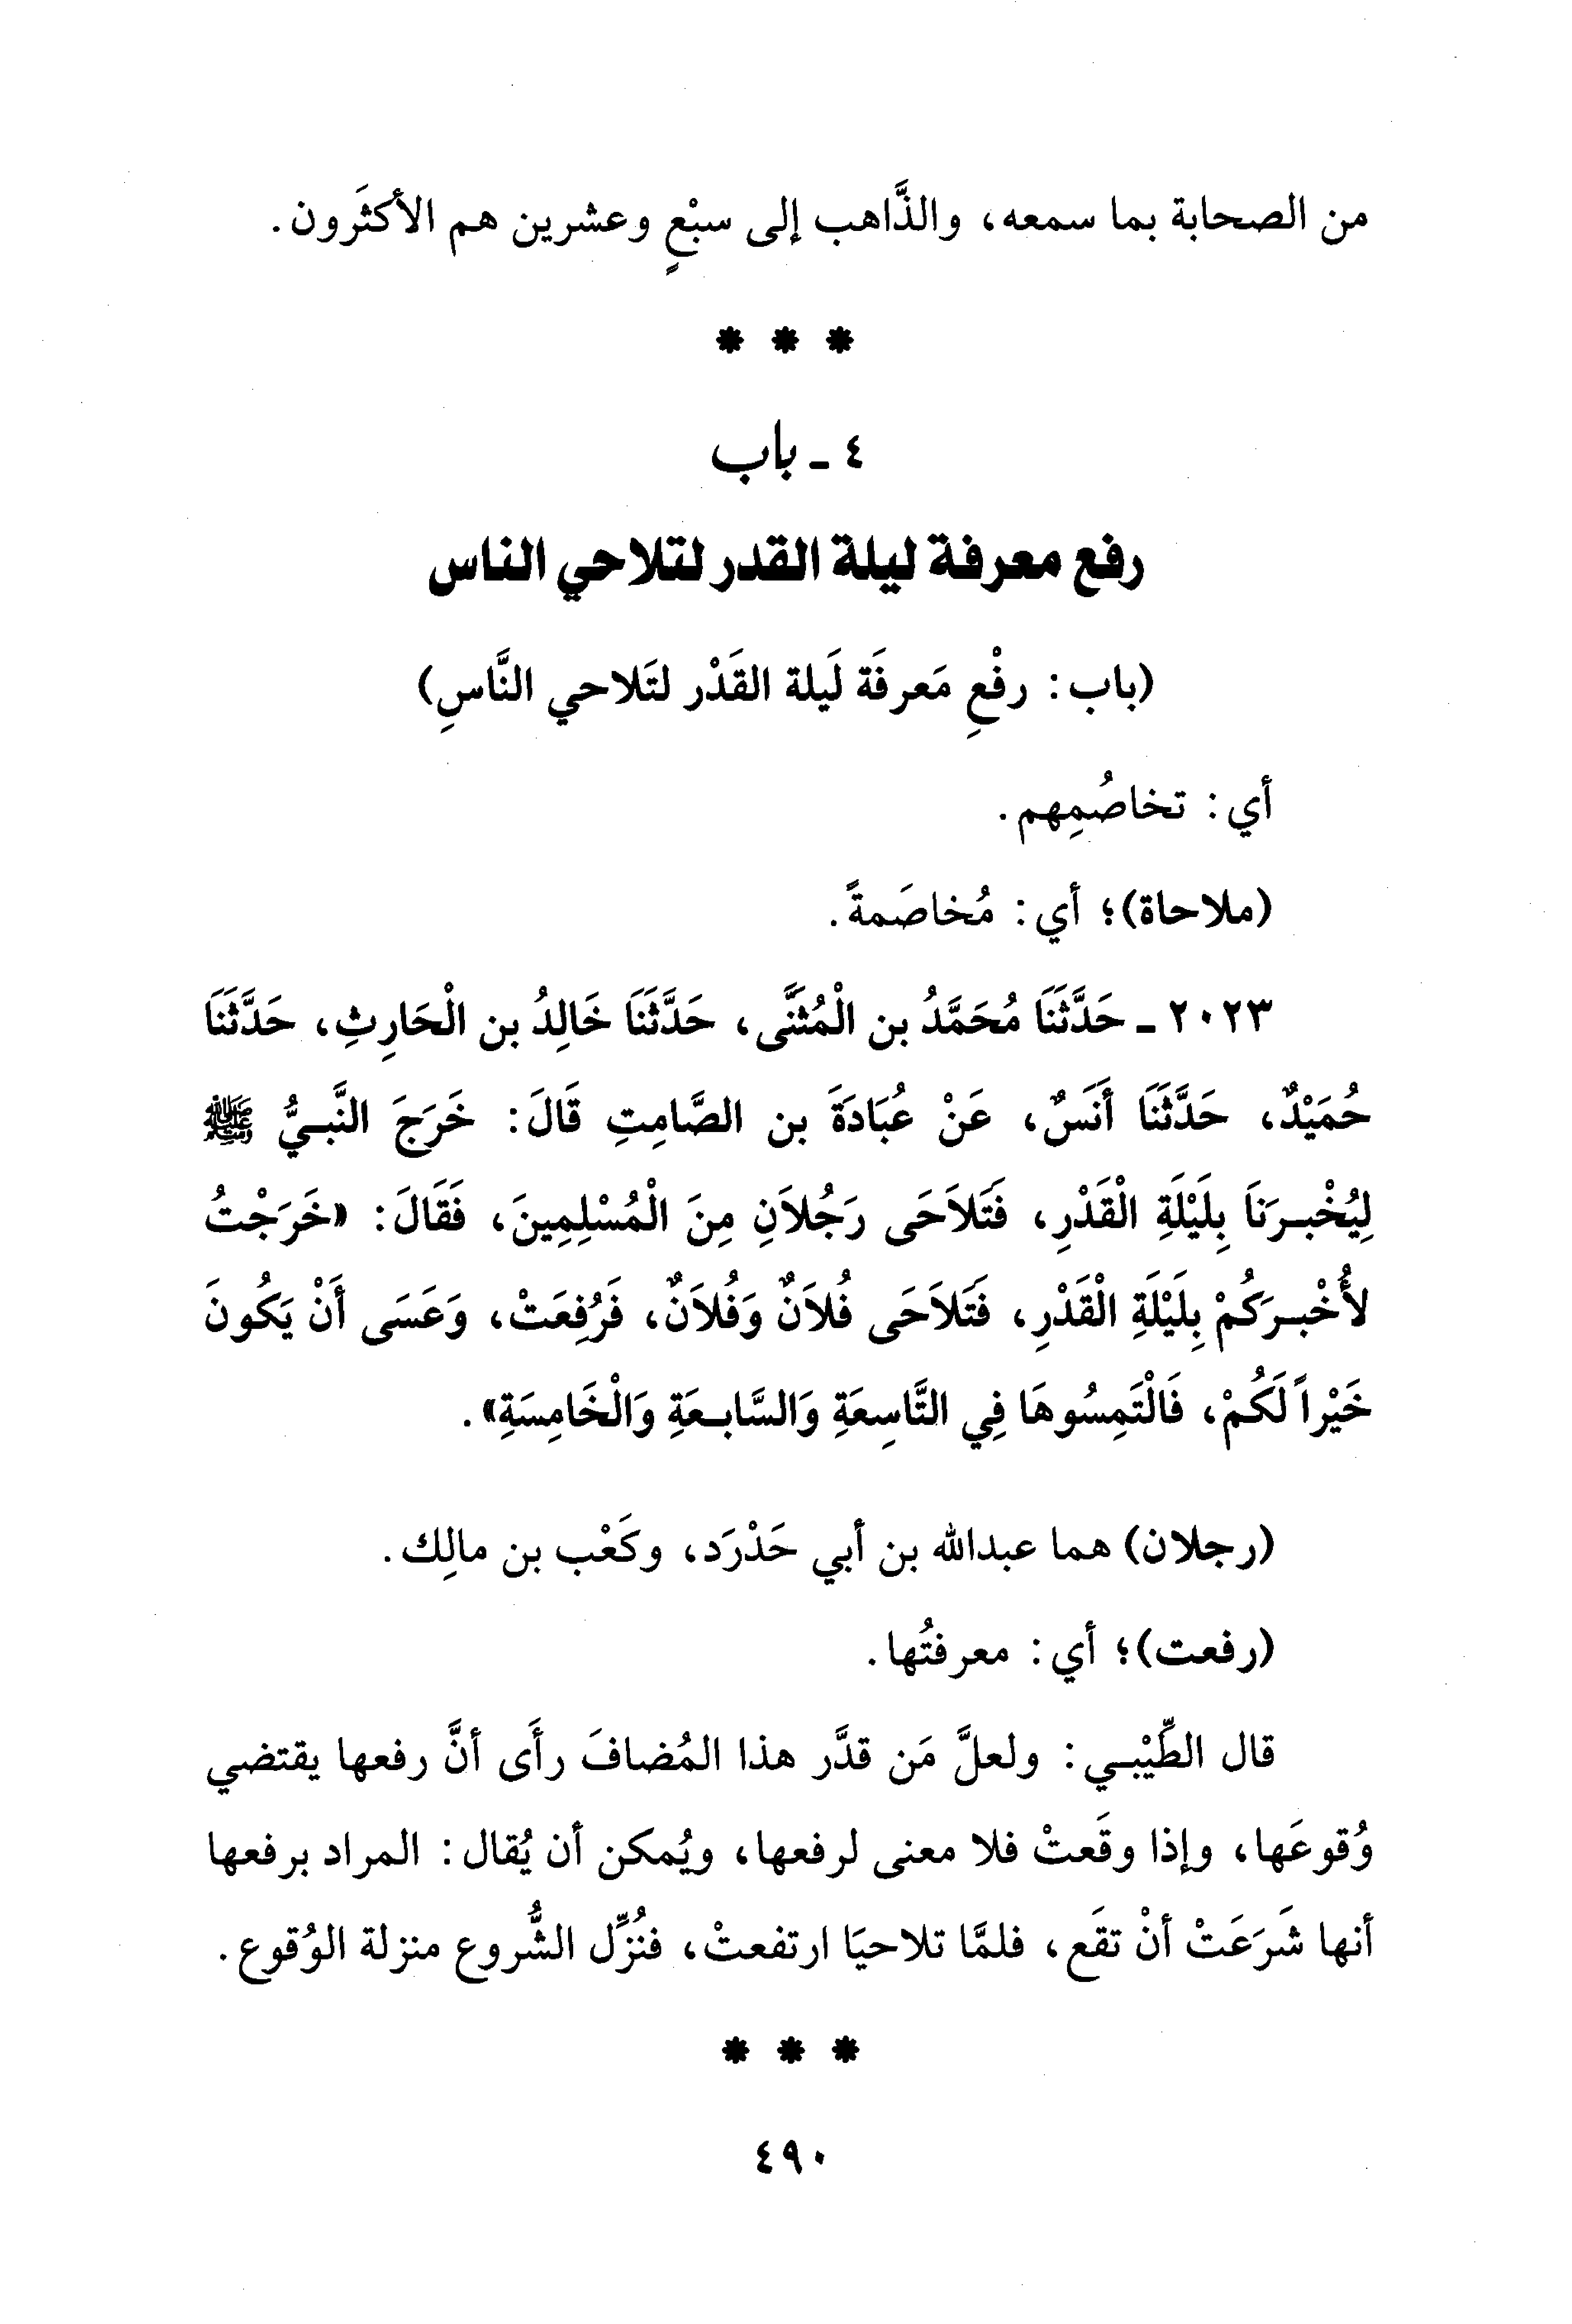 من الصحابة بما سمعه، والذَّاهب إلى سبْعٍ وعشرين هم الأكثَرون.
* * *
٤ - باب
رفع معرفة ليلة القدر لتلاحي الناس
(باب: رفْعِ مَعرفَة لَيلة القَدْر لتَلاحي النَّاسِ)
أي: تخاصُمِهم.
(ملاحاة)؛ أي: مُخاصَمةً.
٢٠٢٣ - حَدَّثَنَا مُحَمَّدُ بن الْمُثنَّى، حَدَّثَنَا خَالِدُ بن الْحَارِثِ، حَدَّثَنَا
حُمَيْدٌ، حَدَّثَنَا أَنَسٌ، عَنْ عُبَادَةَ بن الصَّامِتِ قَالَ: خَرَجَ النَّبيُّ ﷺ
لِيُخْبرَنَا بِلَيْلَةِ الْقَدْرِ، فَتَلاَحَى رَجُلاَنِ مِنَ الْمُسْلِمِينَ، فَقَالَ: «خَرَجْتُ
لأُخْبرَكُمْ بِلَيْلَةِ الْقَدْرِ، فَتَلاَحَى فُلاَنٌ وَفُلاَنٌ، فَرُفِعَتْ، وَعَسَى أَنْ يَكُونَ
خَيْراً لَكُمْ، فَالْتَمِسُوهَا فِي التَّاسِعَةِ وَالسَّابعَةِ وَالْخَامِسَةِ».
(رجلان) هما عبدالله بن أبي حَدْرَد، وكَعْب بن مالِك.
(رفعت)؛ أي: معرفتُها.
قال الطِّيْبي: ولعلَّ مَن قدَّر هذا المُضافَ رأَى أنَّ رفعها يقتضي
وُقوعَها، وإذا وقَعتْ فلا معنى لرفعها، ويُمكن أن يُقال: المراد برفعها
أنها شَرَعَتْ أنْ تقَع، فلمَّا تلاحيَا ارتفعتْ، فنُزِّل الشُّروع منزلة الوُقوع.
* * *
٤٩٠